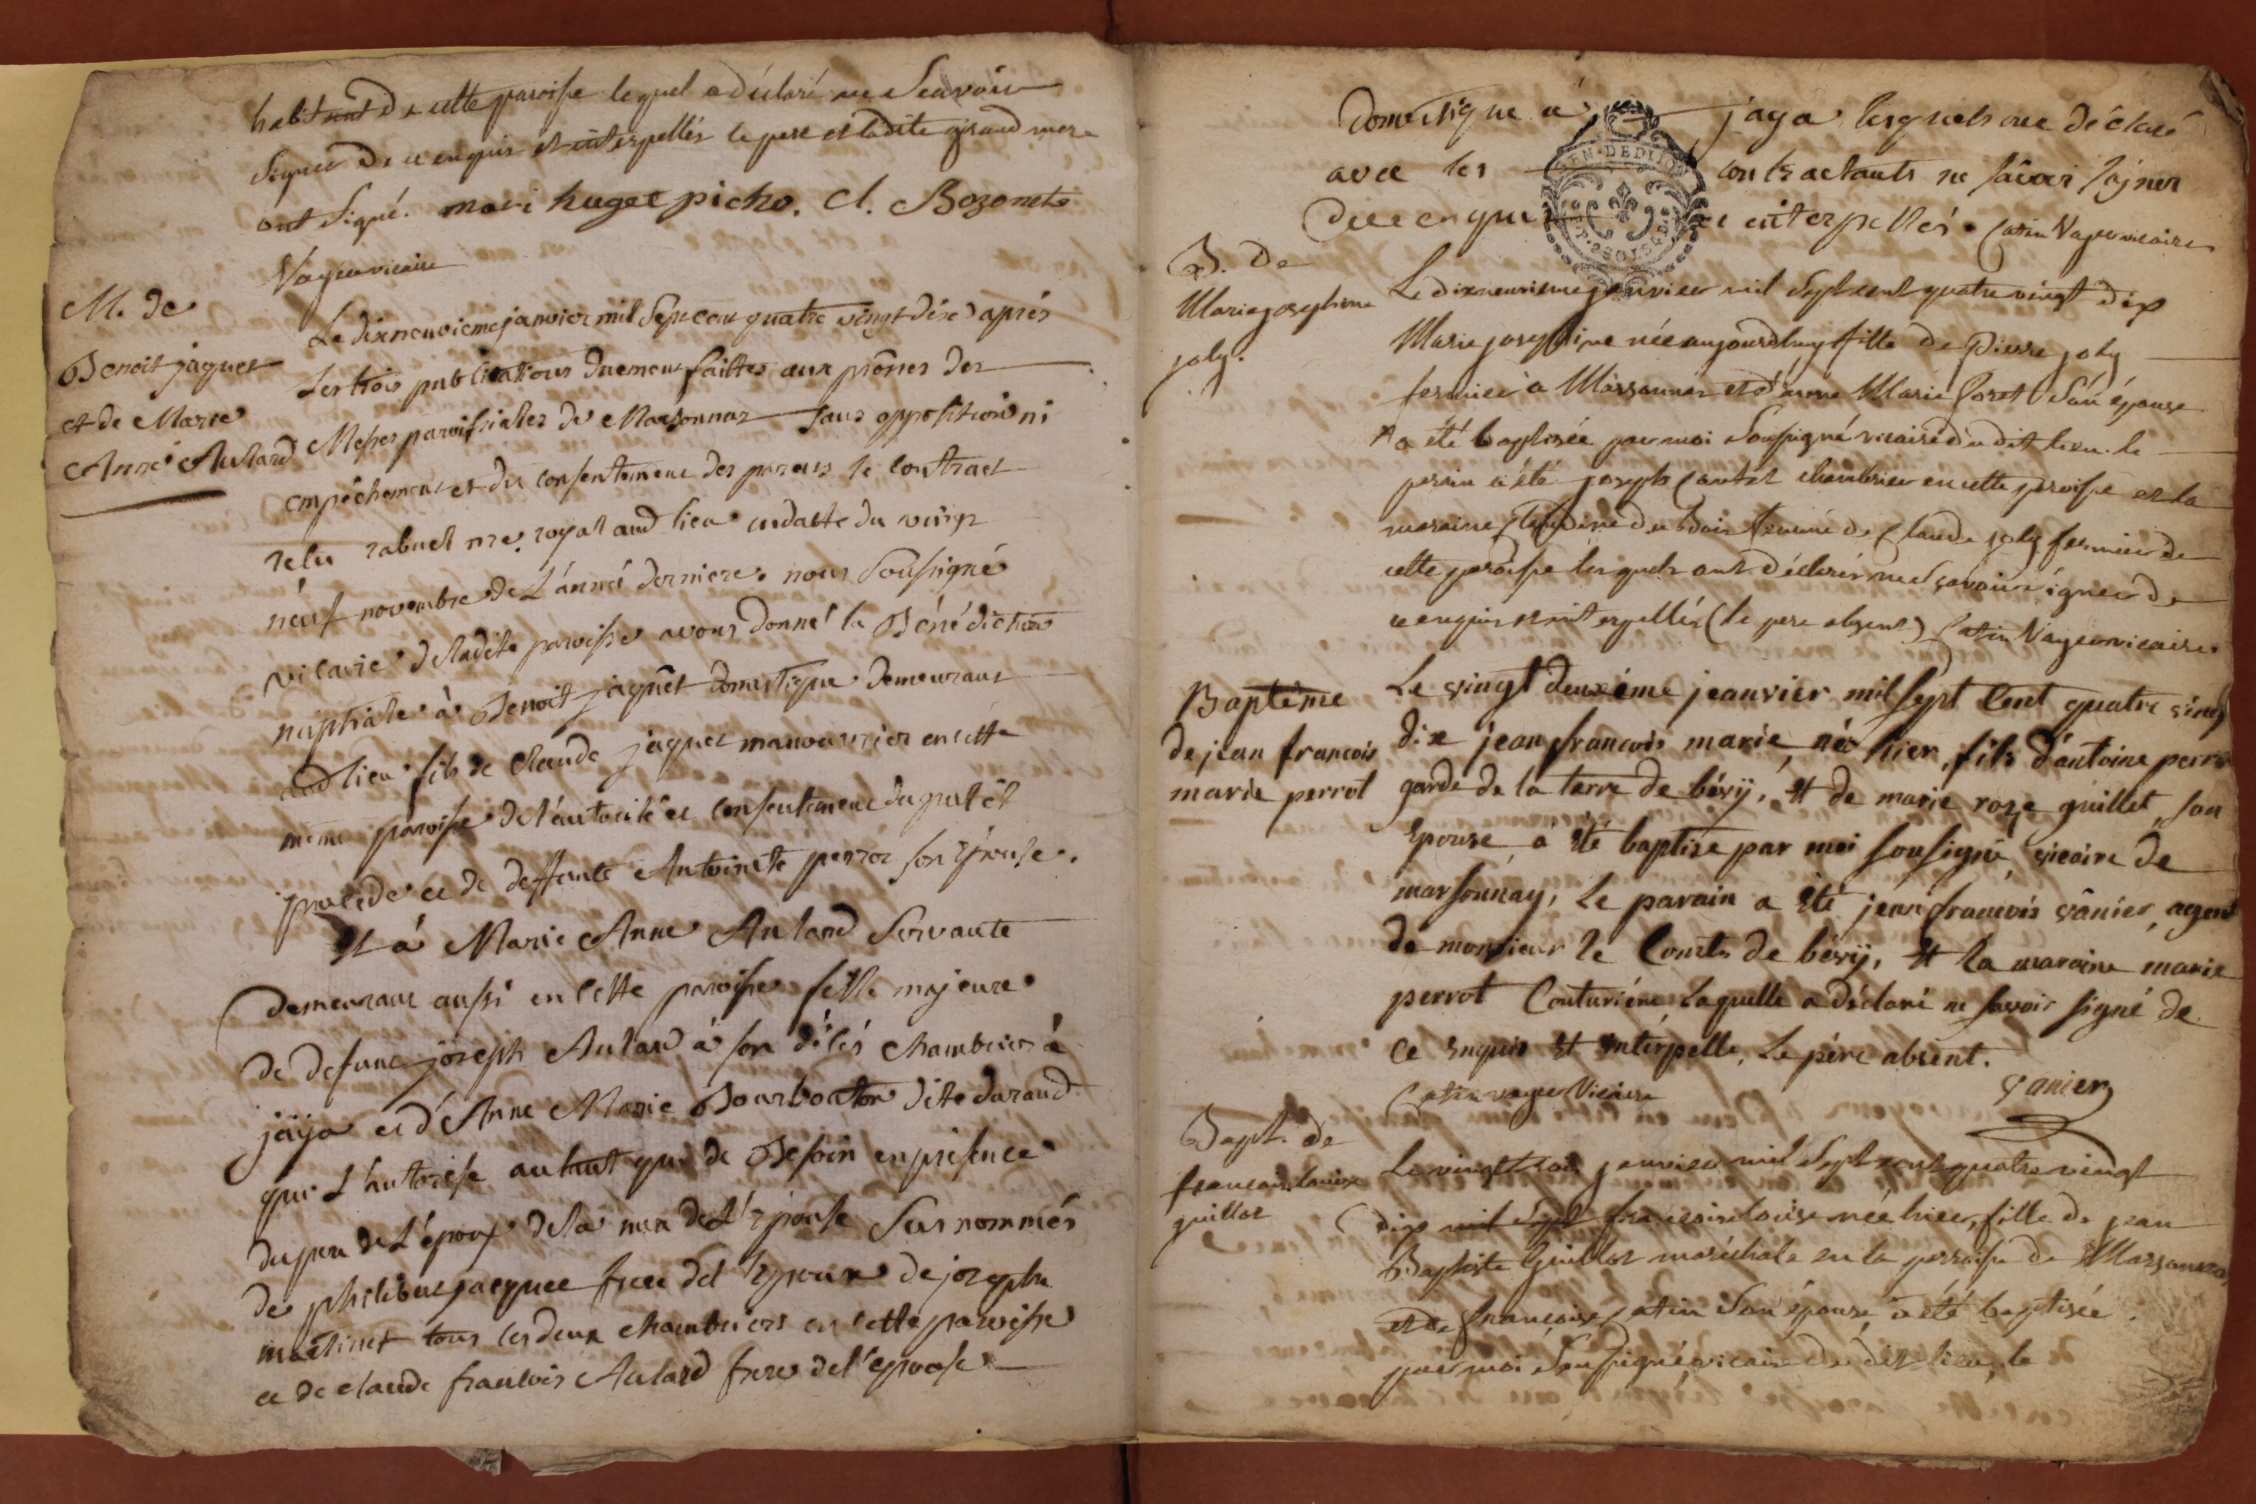 habitant de cette paroisse lequel a déclaré ne Scavoir
Signer de ce enquis et interpellés le pere et ladite grand mere
ont Signé. mari huget picho. Cl. Bozonet
Vayeur vicaire
M. de
Benoit jaquet
et de Marie
Anne Aulard
Le dixneuvieme janvier mil Sept cent quatre vingt dix après
Les trois publications duement faittes aux prônes des
Messes paroissiales de Marsonnaz Sans opposition ni
empêchement et du consentement des parens le contract
relu rabuel nre. royal aud lieu endatte du vingt
néuf novembre de L'anné derniere. nous Soussigné
vicaire de ladite paroisse avons donné la Bénédiction
nuptiale à Benoit jaquet domestique demeurant
aud lieu fils de Claude jaquet manouvrier en cette
même paroisse de l'autorité et consentement duquel il
procede et de deffunte Antoinette perroz son Epouse.
Et à Marie Anne Aulard Servante
demeurant aussi en cette paroisse fille majeure
de defunt joseph Aulard à son décés chambrier à
jaÿa et d'Anne Marie Bourbon dite durand
qui L'hautorise autant que de Besoin en présence
du pere de L'époux de la mere de L'Epouse Susnommés
de philibert jacquet frere del'Epoux de joseph
martinet tous les deux chambriers en cette paroisse
et de claude francois Aulard frere del'epouse
domestique à jaya lesquels ont déclaré
avec les contractants ne sâvoir signer
de ce enquis et interpellés. Catin Vayeur vicaire
GEN. DE DIJON
B. de
Marie josephine
joly.
Le dixneuvieme janvier mil Sept cent quatre vingt dix
Marie josephine née aujourdhuy fille de Pierre joly
fermier à Marsonnas et d'anne Marie Poret Son épouse
a été baptisée par moi Soussigné vicaire du dit lieu. le
parain a été joseph Cautet chambrier en cette paroisse et la
maraine Claudine du Bois femme de Claude joly fermier de
cette paroisse lesquels ont déclarés ne Scavoir Signer de
ce enquis et interpellés (le pere absent) Catin Vayeur vicaire
Baptême
de jean francois
marie perrot
Le vingt deuxéme jeanvier mil sept Cent quatre vingt
dix jean francois marie, né hier, fils d'antoine perrot
garde de la terre de béviÿ, et de marie roze guillet, son
épouse, a été baptise par moi sousigné, vicaire de
marsonnay, Le parain a été jean francois vânier, agent
de monsieur le Comte de béviÿ, et la maraine marie
perrot Couturiére, Laquelle a déclaré ne savoir signé de
Ce enquis et interpelle, Le pére absent.
Catin vayeur Vicaire vanier
Bapt. de
francoise louise
guillot
Le vingt trois janvier mil Sept cent quatre vingt
dix mil Sept francoise louise née hier, fille de jean
Baptiste Guillot maréchale en la parroisse de Marsonnaz
et de francoise Catin Son épouse, a été baptisée
par moi Soussigné vicaire du dit lieu, le